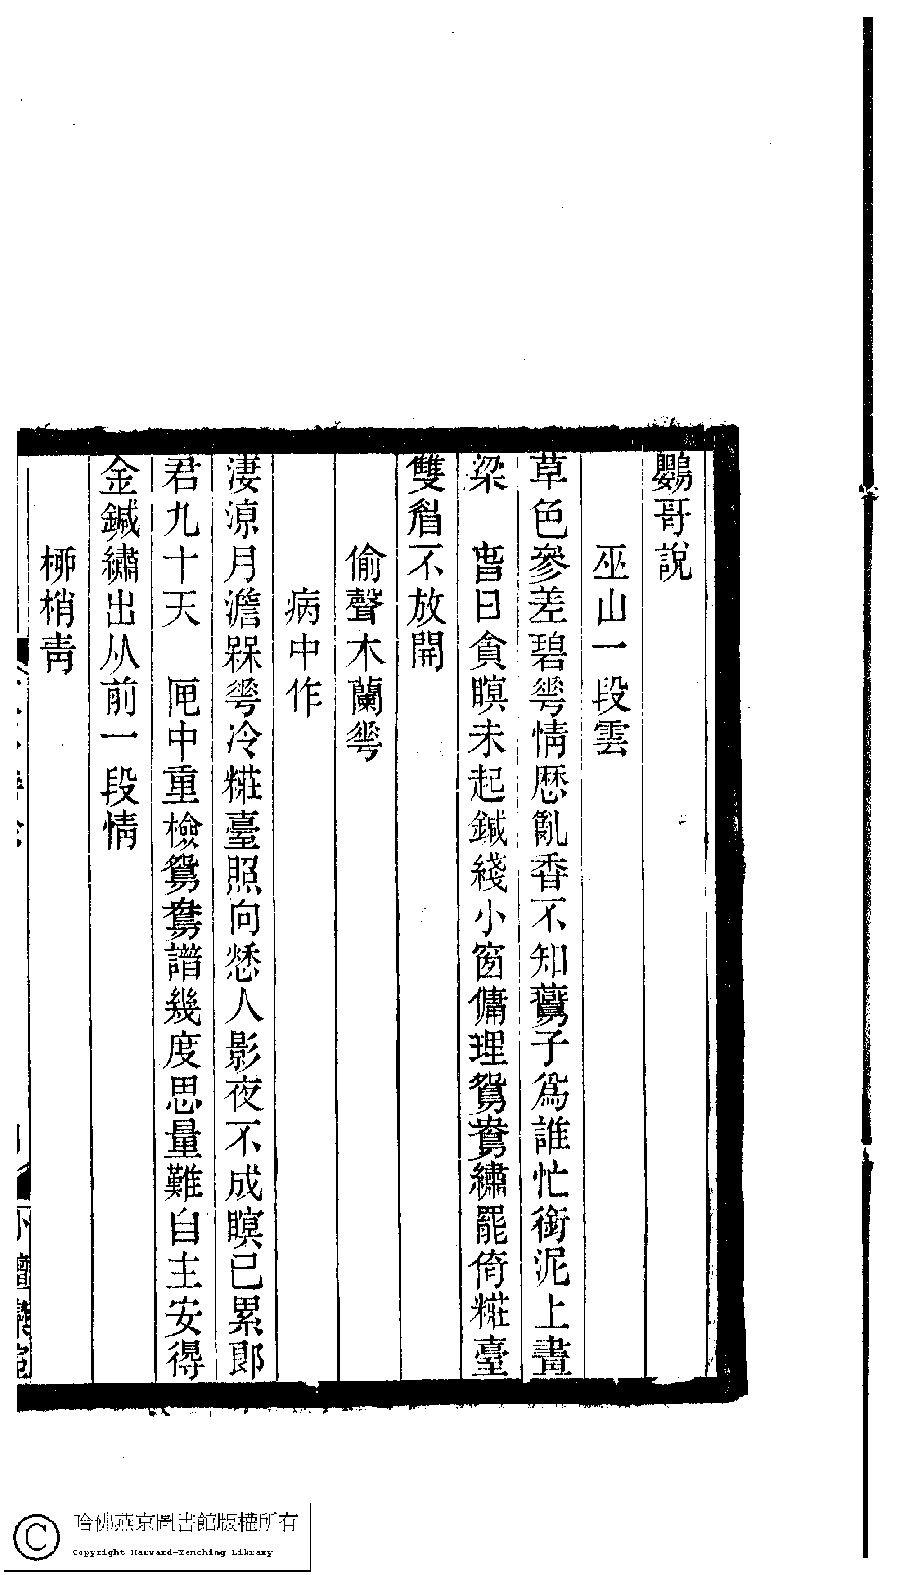 鸚哥說
巫山一段雲
草色參差碧䔢情歷亂香不知鷰子爲誰忙銜泥上畫
梁　昔日貪瞑未起鍼綫小窗傭理鴛鴦繡罷倚糚臺
雙眉不放開
偷聲木蘭䔢
病中作
淒涼月澹槑䔢冷糚臺照向愁人影夜不成瞑已累郎
君九十天　匣中重檢鴛鴦譜幾度思量難自主安得
金鍼繡出从前一段情
柳梢靑
小檀欒室
哈佛燕京圖書館版權所有
Copyright Harvard-Yenching Library